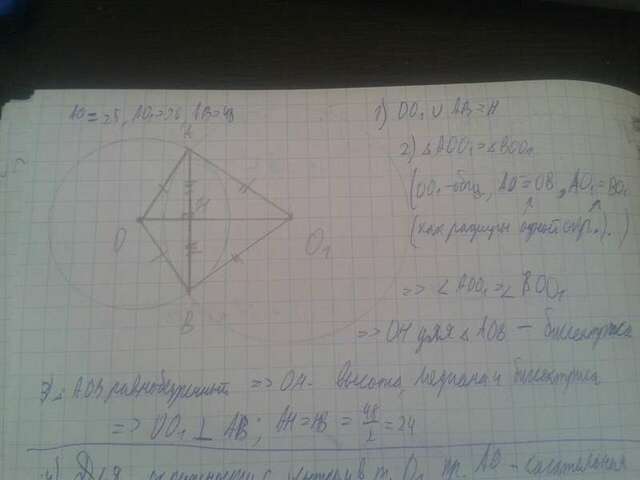 AO = 25, AO₁ = 26 AB = 48
A
H
O
O₁
B
1) OO₁ ∪ AB = H
2) △AOO₁ = △BOO₁
(OO₁ - общ, AO = OB, AO₁ = BO₁
(как радиусы одной окр.).)
=> ∠AOO₁ = ∠BOO₁
=> OH для △AOB - биссектриса
3) △AOB равнобедренный => OH - высота, медиана и биссектриса
=> OO₁ ⊥ AB; AH = HB = 48/2 = 24
4) Для окружности с центром в т. O₁ пр. AO - касательная